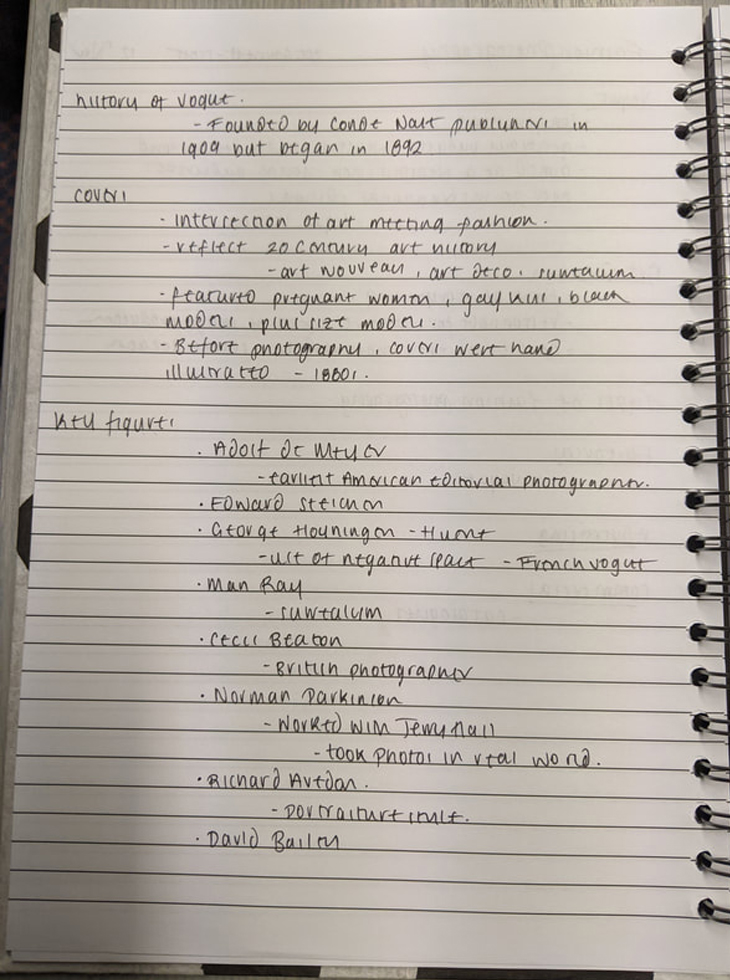 history of vogue.
- Founded by Conde Nast publishers in
1909 but began in 1892
covers
- intersection of art meeting fashion.
- reflect 20 century art history
- art nouveau, art deco, surrealism
- featured pregnant women, gay kiss, black
models, plus size models.
- Before photography, covers were hand
illustrated - 1880s.
key figures
· Adolf de Meyer
- earliest American editorial photographer.
· Edward Steichen
· George Hoyningen - Huene
- use of negative space - French vogue
· Man Ray
- surrealism
· Cecil Beaton
- British photographer
· Norman Parkinson
- worked with Jerry Hall
- took photos in real world.
· Richard Avedon.
- portraiture style.
· David Bailey